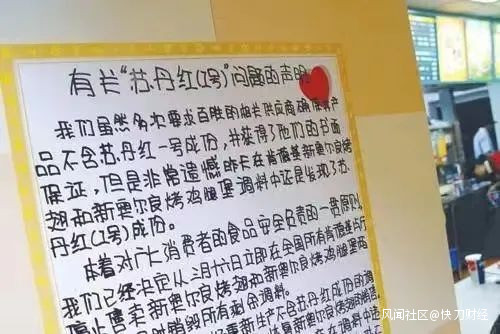 有关“苏丹红(1号)”问题的声明
我们虽然多次要求百胜的相关供应商确保其产
品不含苏丹红一号成份,并获得了他们的书面
保证,但是非常遗憾昨卡在肯德基新奥尔良烤
翅和新奥尔良烤鸡腿堡调料中还是发现了苏
丹红(1号)成份。
本着对广大消费者的食品安全负责的一贯原则,
我们已经决定从三月十六日立即在全国所有肯德基
停止售卖新奥尔良烤
销毁所有剩余调料。
重新生产不含苏丹红成份的调
风闻社区@快刀财经